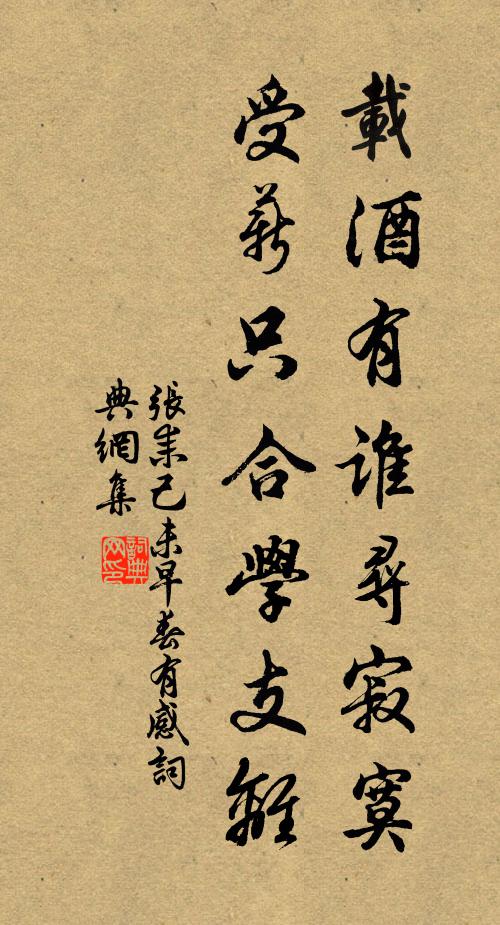 載酒有誰尋寂寞
受薪只合學支離
張耒己未早春有感詞
典網集
詞典
網印